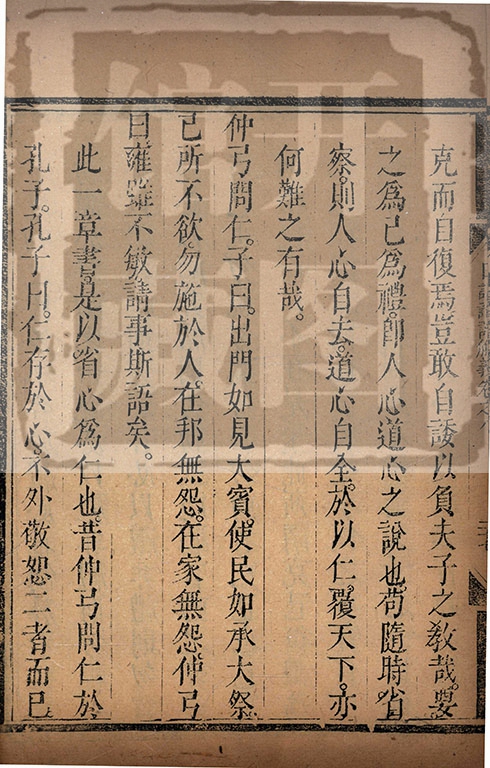 克而自復焉豈敢自諉以負夫子之教哉要
之為己為禮即人心道心之說也苟隨時省
察則人心自去道心自全於以仁覆天下亦
何難之有哉
仲弓問仁子曰出門如見大賓使民如承大祭
己所不欲勿施於人在邦無怨在家無怨仲弓
曰雍雖不敏請事斯語矣
此一章書是以省心為仁也昔仲弓問仁於
孔子孔子曰仁存於心不外敬恕二者而已